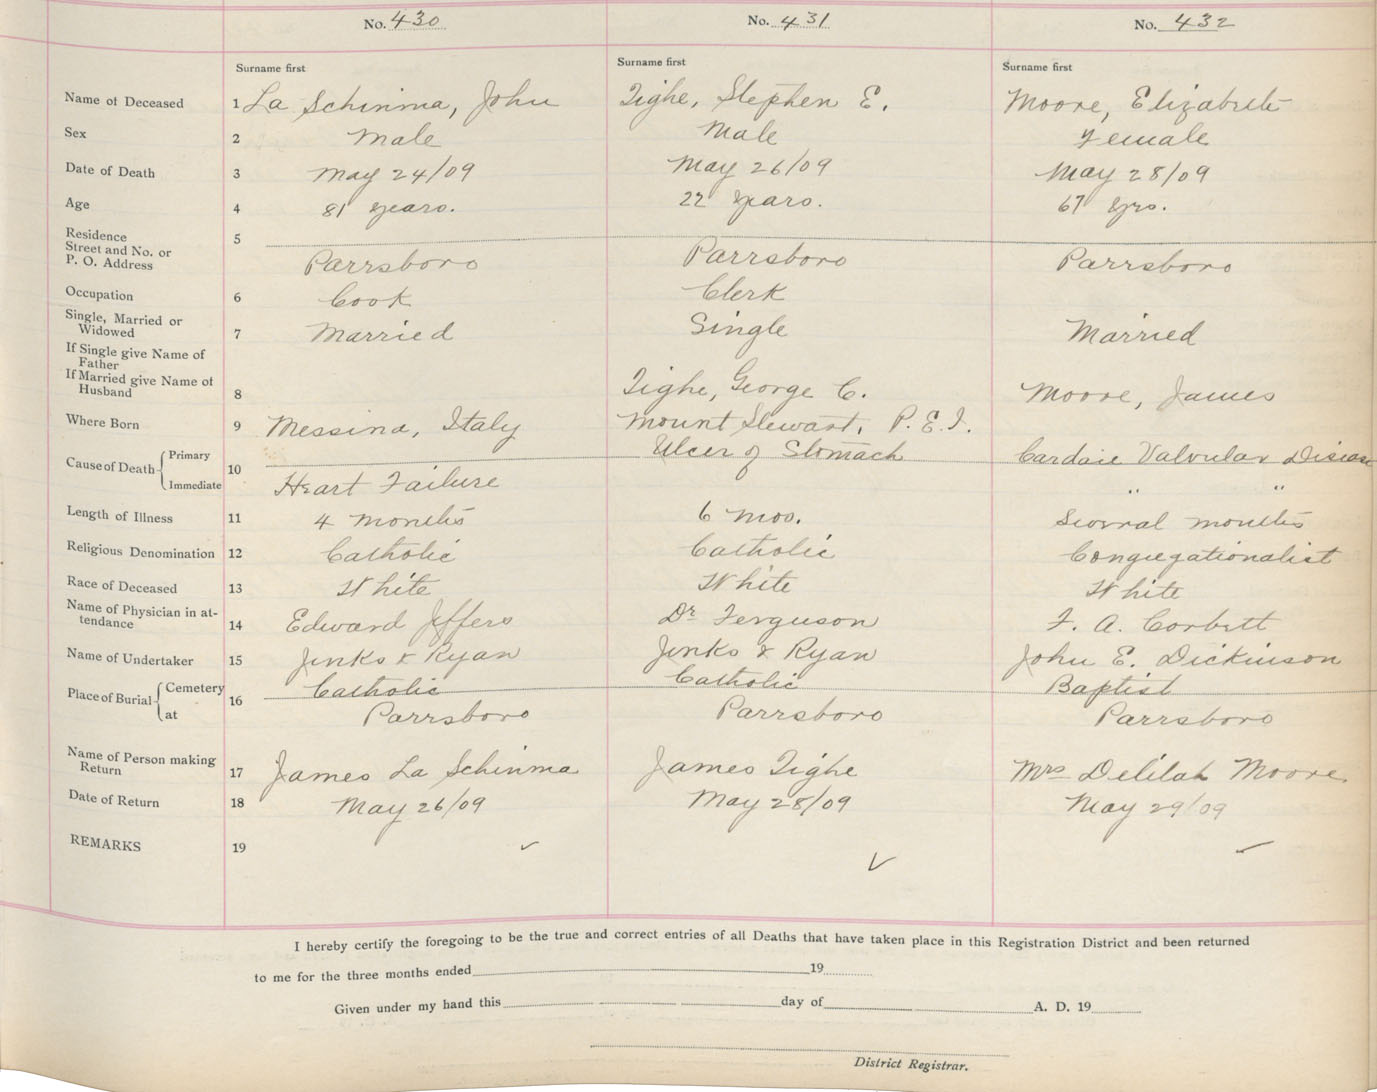 No. 430 No. 431 No. 432
Surname first Surname first Surname first
Name of Deceased 1 La Schinma, John Tighe, Stephen E. Moore, Elizabeth
Sex 2 Male Male Female
Date of Death 3 May 24/09 May 26/09 May 28/09
Age 4 81 years. 22 years. 67 yrs.
Residence 5
Street and No. or
P. O. Address Parrsboro Parrsboro Parrsboro
Occupation 6 Cook Clerk
Single, Married or
Widowed 7 Married Single Married
If Single give Name of
Father
If Married give Name of
Husband 8 Tighe, George C. Moore, James
Where Born 9 Messina, Italy Mount Stewart, P.E.I.
Cause of Death Primary 10 Ulcer of Stomach Cardaic Valvular Disease
Immediate Heart Failure " "
Length of Illness 11 4 months 6 mos. Several months
Religious Denomination 12 Catholic Catholic Congregationalist
Race of Deceased 13 White White White
Name of Physician in at-
tendance 14 Edward Jeffers Dr Ferguson F. A. Corbett
Name of Undertaker 15 Jenks & Ryan Jenks & Ryan John E. Dickinson
Place of Burial Cemetery 16 Catholic Catholic Baptist
at Parrsboro Parrsboro Parrsboro
Name of Person making
Return 17 James La Schinma James Tighe Mrs Delilah Moore
Date of Return 18 May 26/09 May 28/09 May 29/09
REMARKS 19 ✓ ✓ ✓
I hereby certify the foregoing to be the true and correct entries of all Deaths that have taken place in this Registration District and been returned
to me for the three months ended 19
Given under my hand this day of A. D. 19
District Registrar.